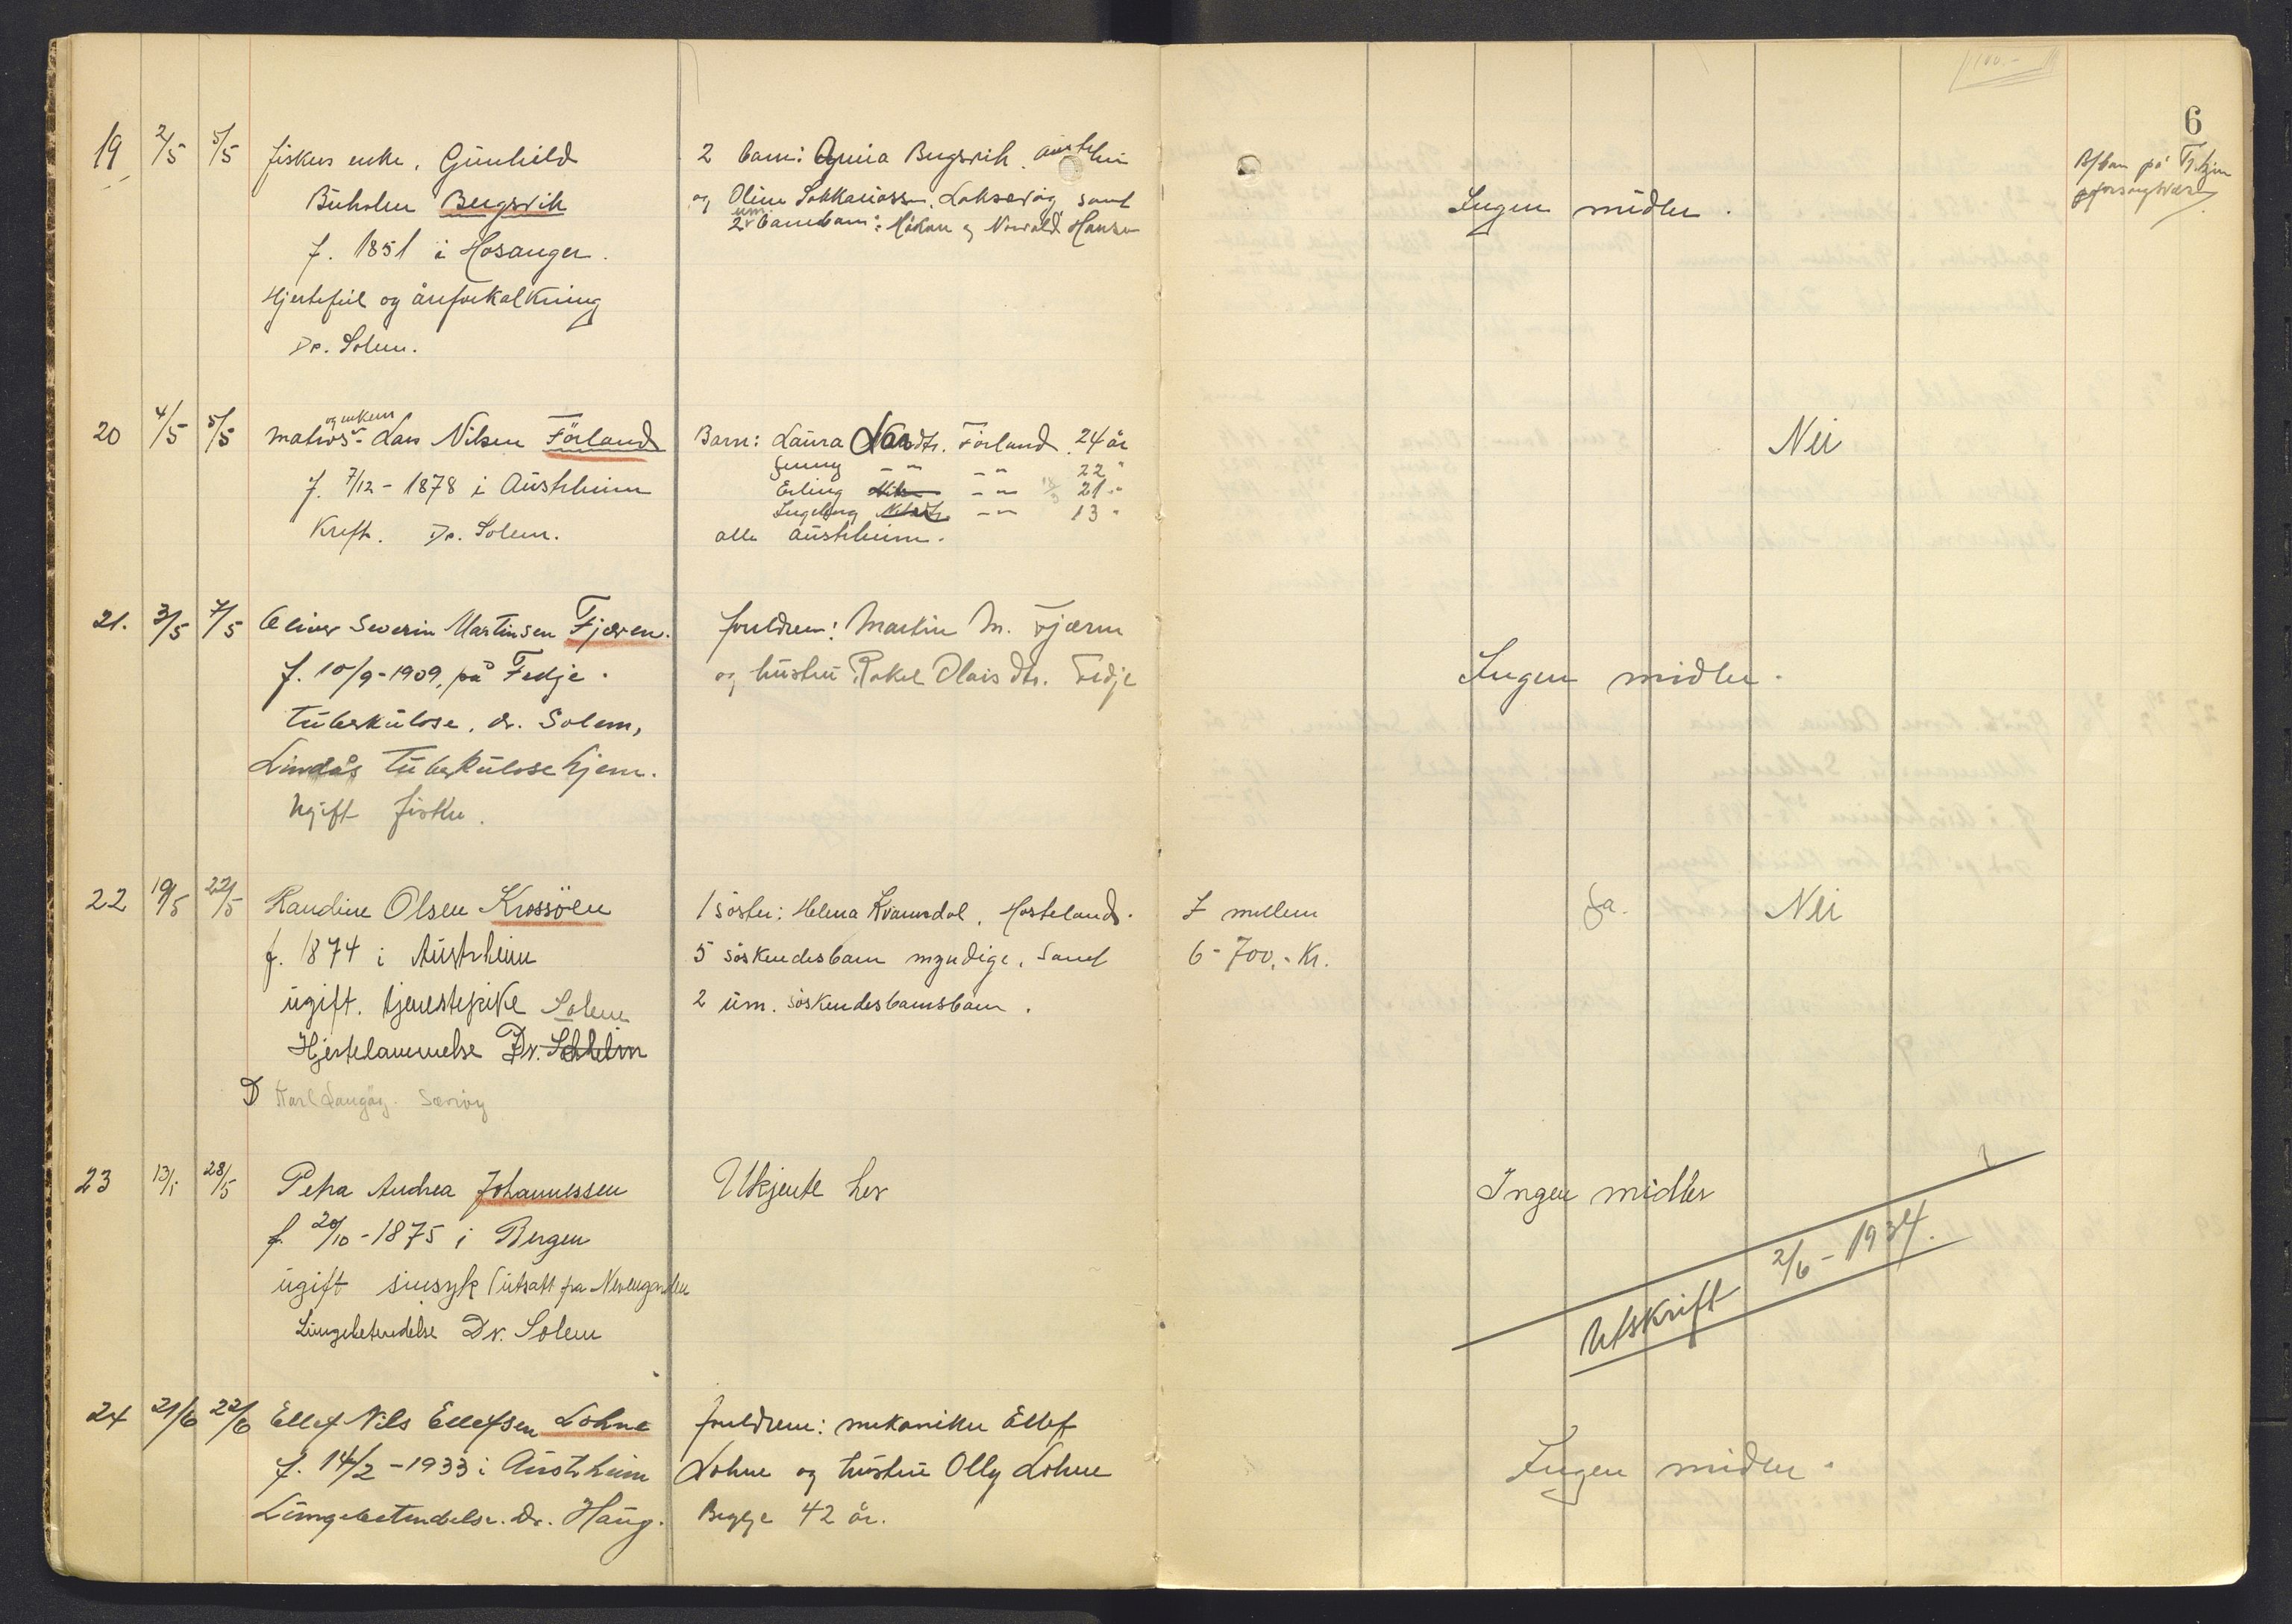 6
19 2/5 5/5 fiskers enke, Gunhild
Buholm Bergsvik
f. 1851 i Hosanger.
Hjertefeil og åreforkalkning
Dr. Solem.
2 barn: Anna Bergsvik. Austrheim
og Oline Sakkariassen, Laksevåg samt
2 um. barnebarn: Håkon og Norvald Hansen
Ingen midler.
på Tr.hjem
20 4/5 5/5 matros og enkem. Lars Nilsen Förland
f. 7/12 - 1878 i Austrheim
Kreft. Dr. Solem.
Barn: Laura Larsdtr. Förland. 24 år
Jenny -"- -"- 22 "
Erling -"- 21 "
Ingeborg -"- 13 "
alle Austrheim.
Nei
21. 3/5 7/5 Oliver Severin Martinsen Fjæren.
f. 10/9-1909, på Fedje.
Tuberkulose, dr. Solem,
Lindås Tuberkulosehjem.
Ugift fisker.
foreldre: Martin M. Fjæren
og hustru Rakel Olaisdtr. Fedje
Ingen midler.
22 19/5 22/5 Randine Olsen Krossöen
f. 1874 i Austrheim
ugift. tjenestepike Solem
Hjertelammelse Dr.
D Karl Langöy. Særvoy
1 söster: Helena Kvamsdal, Hosteland.
5 söskendesbarn myndige, samt
2 um. söskendesbarnsbarn.
I mellem
6-700,- Kr.
Ja.
Nei
23 13/1 28/5 Petra Andrea Johannessen
f. 20/10 - 1875 i Bergen
ugift sinsyk (utsatt fra Nevengården
Lungebetendelse Dr. Solem
Ukjente her
Ingen midler
Utskrift 2/6 - 1934.
24 21/6 22/6 Ellef Nils Ellefsen Lohne
f. 14/2 - 1933 i Austrheim
Lungebetendelse. Dr. Haug.
foreldre: mekaniker Ellef
Lohne og hustru Olly Lohne
Begge 42 år.
Ingen midler.